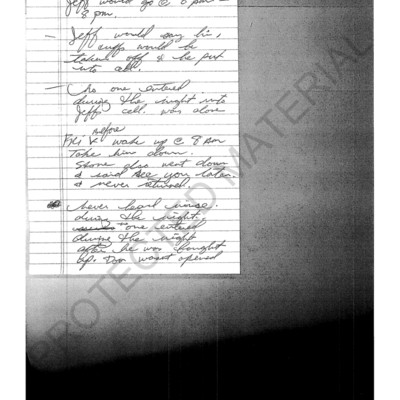 Jeff would go @ 6 pm -
8 pm.
— Jeff would say hi,
cuffs would be
taken off & he put
into cell.
— No one entered
during the night into
Jeff's cell. was alone
before
Fri wake up @ 8 am
Take him down.
Someone else went down
& said see you later.
& never returned
Never heard noise
during the night.
no one entered
during the night
after he was brought
up. Door wasnt opened
PROTECTED MATERIAL